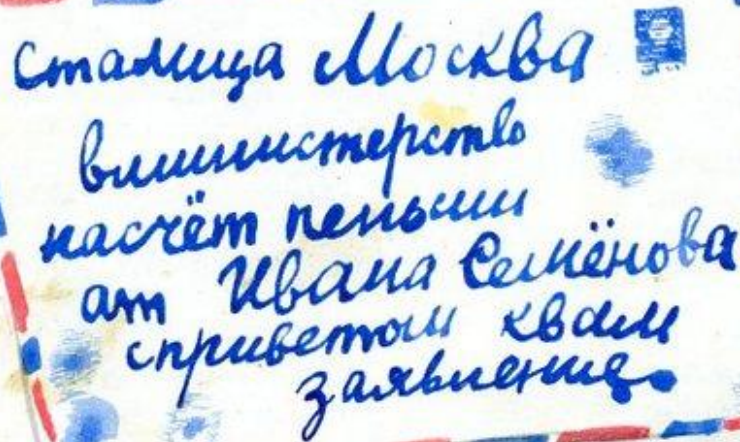 сталица Москва
вминистерство
насчёт пеньсии
ат Ивана Семёнова
сприветом квам
заявление.